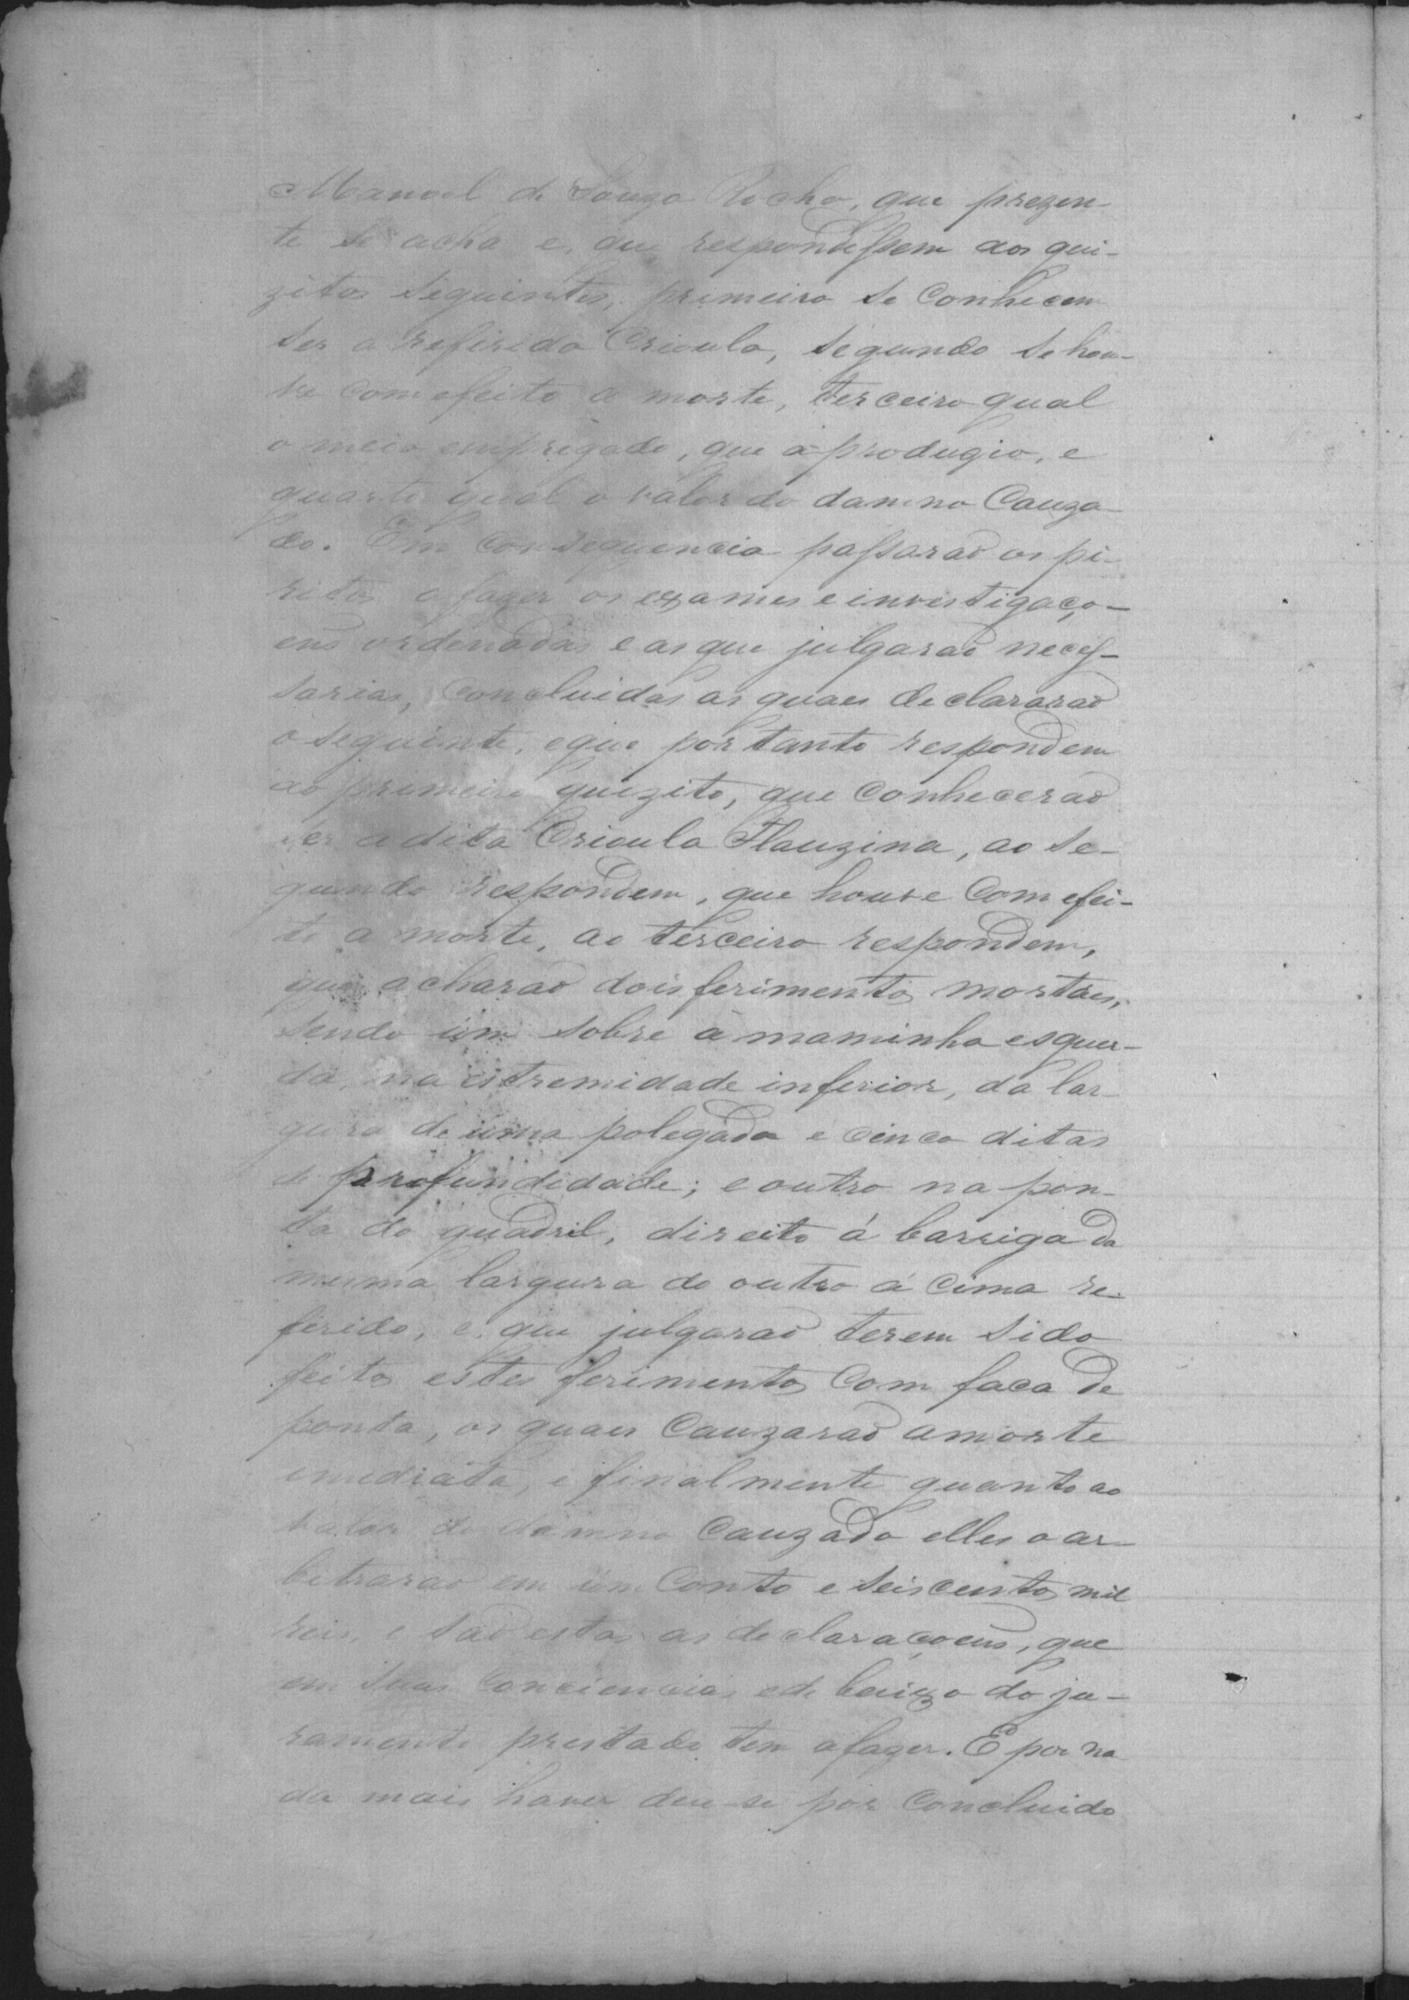 Manoel de Souza Rocha, que prezen-
te se acha e, que respondessem aos qui-
zitos seguintes, primeiro se conhecem
ser a referida Crioula, segundo se hou-
ve com efeito a morte, terceiro qual
o meio empregado, que a produzio, e
quarto qual o valor do damno Cauza-
do. Em consequencia passarão os pi-
ritos a fazer os exames e investigaço-
ens ordenadas e as que julgarão neces-
sarias, Concluidas as quaes declararão
o seguinte, e que por tanto respondem
ao primeiro quizito, que Conhecerão
ser a dita Crioula Flauzina, ao se-
gundo respondem, que houve Com efei-
to a morte, ao terceiro respondem,
que acharão dois ferimentos mortaes,
sendo um sobre a maminha esquer-
da, na estremidade inferior, da lar-
gura de uma polegada e cinco ditas
de profundidade; e outro na pon-
ta do quadril, direito á barriga da
mesma largura do outro á cima re-
ferido, e que julgarão terem sido
feitos estes ferimentos Com faca de
ponta, os quaes Cauzarão a morte
imediata, e finalmente quanto ao
valor do damno Cauzado elles o ar-
bitrarão em um Conto e seiscentos mil
reis, e são estas as declaraçoens, que
em suas Conciencias e de baixo do ju-
ramento prestado tem a fazer. E por na
da mais haver deu-se por Concluido